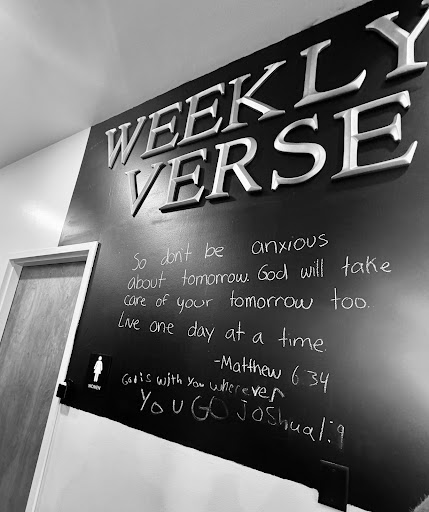 WEEKLY
VERSE
So don't be anxious
about tomorrow. God will take
care of your tomorrow too.
Live one day at a time.
-Matthew 6:34
WOMEN
God is with you wherever
YOU GO JOShua1:9